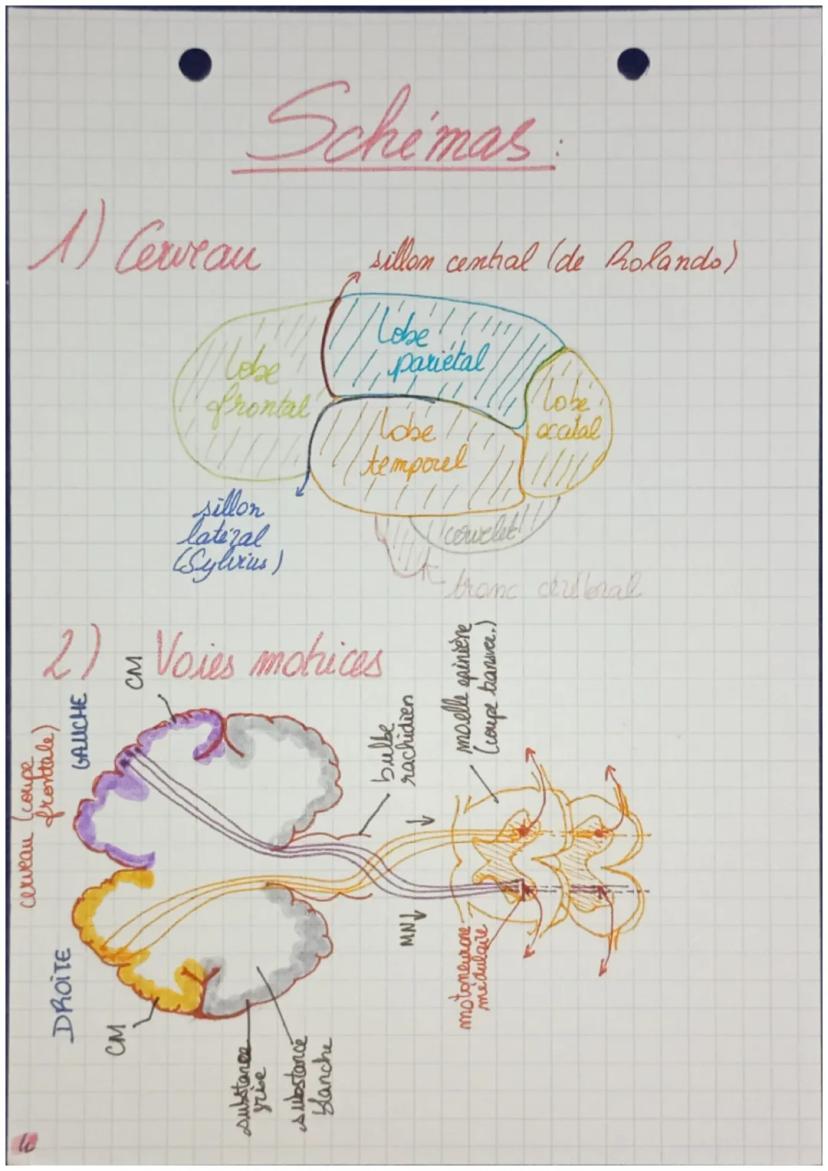 Schémas :
1) Cerveau
sillon central (de Rolando)
lobe
pariétal
lobe
frontal
lobe
occital
lobe
temporel
sillon
latéral
(Sylvius)
cervelet
tronc cérébral
2) Voies motrices
cerveau (coupe
frontale)
GAUCHE
CM
bulbe
rachidien
moelle épinière
(coupe transver.)
DROITE
CM
substance
grise
substance
blanche
MN
motoneurone
médulaire
4